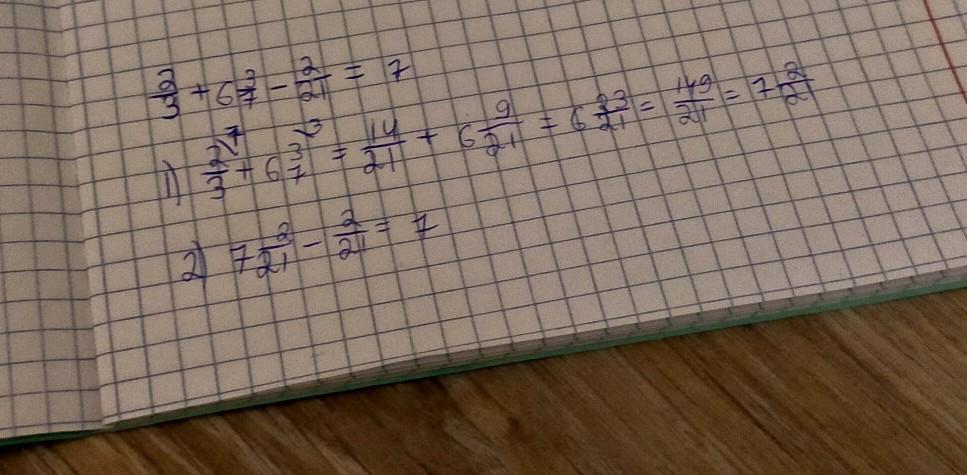 2/3 + 6 3/7 - 2/21 = 7
1) 2/3 ⁷ + 6 3/7 ³ = 14/21 + 6 9/21 = 6 23/21 = 149/21 = 7 2/21
2) 7 2/21 - 2/21 = 7